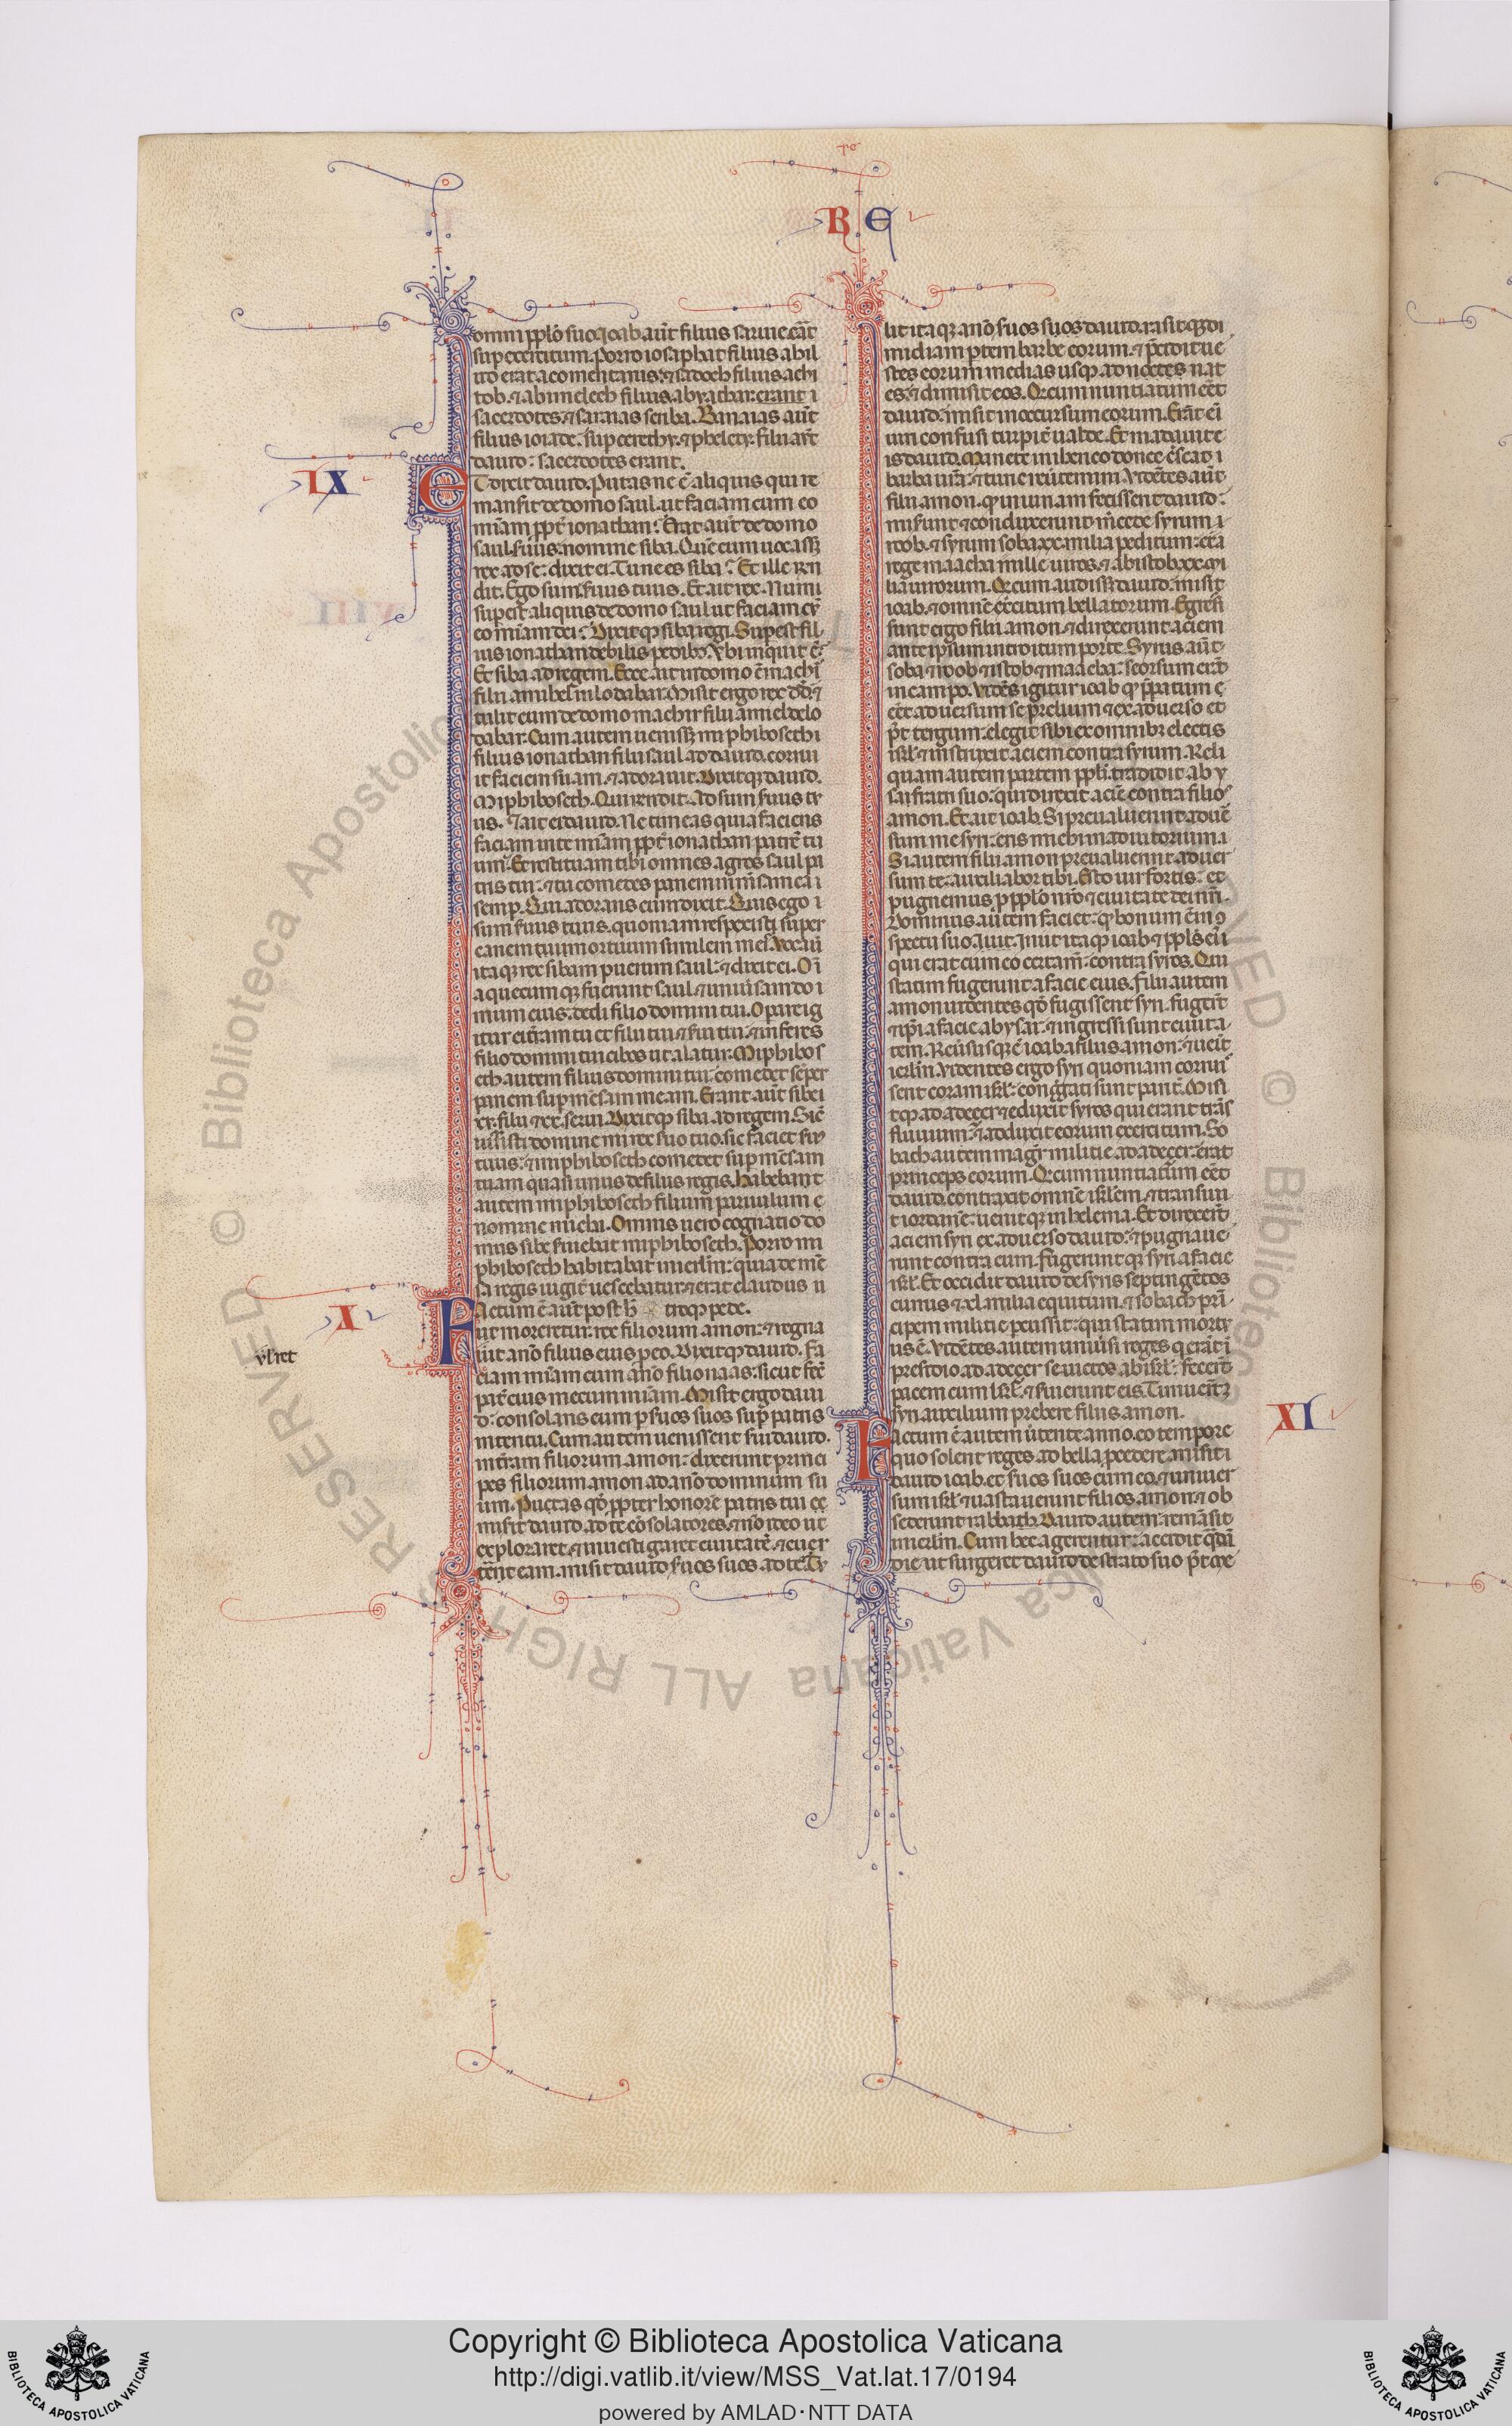 re
R E
omni pplo suo. ioab aut filius saruie erat
sup exercitum. Porro iosaphat filius ahil
ud erat a comentariis: & sadoch filius achi
tob. & abimelech filius abyathar. erant
sacerdotes. & saraias scriba. Banaias aut
filius ioiade. sup cerethy. & pheleti. filii aut
dauid: sacerdotes erant.
IX
ET dixit dauid. Putas ne e aliquis qui re
manserit de domo saul. ut faciam cum eo
miam ppt ionathan? Erat aut de domo
saul. suus nomine siba. Que cum uocass&
rex ad se: dixit ei. Tune es siba? Et ille rn
dit. Ego sum. suus tuus. Et ait rex. Num
supest aliquis de domo saul ut faciam
eo miam dei? Dixitq siba regi. Supest fil
ius ionathan debilis pedib. Vbi inquit e?
Et siba ad regem. Ecce ait in domo e machir
filii amihel in lodabar. Misit ergo rex dd &
tulit eum de domo machir filii amiel de lo
dabar. Cum autem uenisset miphiboseth
filius ionathan filii saul ad dauid. corru
it faciem suam. & adorauit. Dixitq dauid.
Miphiboseth. Qui rendit. Adsum suus tu
us. & ait ei dauid. Ne timeas quia faciens
faciam in te miam ppt ionathan patre tu
um. Et restituam tibi omnes agros saul pa
tris tui: & tu comedes panem in mensa mea
semp. Qui adorans eum dixit. Quis ego
sum suus tuus. quoniam respexisti super
canem mortuum similem mei. Vocauit
itaq rex sibam puerum saul: & dixit ei. Om
a quecumq fuerunt saul & uniuersam do
mum eius: dedi filio domini tui. Opare ig
itur ei tram tu et filii tui & sui tui: & inferes
filio domini tui cibos ut alatur. Miphibos
eth autem filius domini tui: comedet semper
panem sup mesam meam. Erant aut sibe
xv. filii & xx. serui. Dixitq siba ad regem. Sic
iussisti domine mi rex suo tuo. sic faciet suus
tuus: & miphiboseth comedet sup mesam
tuam quasi unus de filiis regis. Habebat
autem miphiboseth filium paruulum
nomine micha. Omnis uero cognatio do
mus sibe seruiebat miphiboseth. Porro mi
phiboseth habitabat in ierlm: quia de me
sa regis iugit uescebatur. & erat claudus u
X
Factum e aut post h troq pede.
ut moreretur rex filiorum amon: & regna
uit ano filius eius p eo. Dixitq dauid. Fa
vl ret
ciam miam cum ano filio naas: sicut fec
pat eius mecum miam. Misit ergo daui
d: consolans eum p suos suos sup patris
intitu. Cum autem uenissent sui dauid.
in tram filiorum amon: dixerunt princi
pes filiorum amon ad ano dominum su
um. Putas qd ppter honore patris tui
misit dauid ad te cosolatores. & no ideo ut
exploraret. & inuestigaret ciuitate. & euer
tent eam. misit dauid suos suos ad te. Tu
lit itaq ano suos suos dauid. rasitq di
midiam ptem barbe eorum. & pcidit ue
stes eorum medias usq ad nates
es. & dimisit eos. Qd cum nuntiatum eet
dauid: misit in occursum eorum. Erat ei
uiri confusi turpit ualde. Et mandauit e
is dauid. Manete in iherico donec crescat
barba ura: & tunc reutemini. Videtes aut
filii amon. q iniuriam fecissent dauid:
miserunt & conduxerunt mcede syrum
roob. & syrum soba xx. milia peditum: & a
rege maacha mille uiros. & ab istob xx. mi
lia uirorum. Qd cum audiss& dauid. misit
ioab. & omne exercitum bellatorum. Egressi
sunt ergo filii amon. & direxerunt aciem
ante ipsum introitum porte. Syrus aut:
soba & roob & istob & maacha: seorsum erat
in campo. Videns igitur ioab q ppatum e
eet aduersum se prelium & ex aduerso et
pt tergum: elegit sibi ex omnib electis
isrl. & instruxit aciem contra syrum. Reli
quam autem partem ppli tradidit aby
sai fratri suo: qui direxit acie contra filios
amon. Et ait ioab. Si preualuerint aduer
sum me syri: eris michi in adiutorium.
Si autem filii amon preualuerint aduer
sum te: auxiliabor tibi. Esto uir fortis: et
pugnemus p pplo nro & ciuitate dei nri.
Dominus autem faciet: q bonum e in con
spectu suo. Iniit itaq ioab & ppls eius
qui erat cum eo certam contra syros. Qui
statim fugerunt a facie eius. Filii autem
amon uidentes qd fugissent syri. fugerut
& ipsi a facie abysai: & ingressi sunt ciuita
tem. Reuersusq e ioab a filiis amon: & uenit
ierlm. Videntes ergo syri quoniam corruis
sent coram isrl: congregati sunt parit. Misi
tq adadezer & eduxit syros qui erant trans
fluuium: & adduxit eorum exercitum. So
bach autem magr militie adadezer: erat
princeps eorum. Qd cum nuntiatum eet
dauid. contraxit omne isrlem. & transiui
t iordane. uenitq in helema. Et direxert
aciem syri ex aduerso dauid: & pugnaue
runt contra eum. Fugeruntq syri a facie
isrl. Et occidit dauid de syris septingetos
currus & xl. milia equitum. & sobach prin
cipem militie pcussit: qui statim mortu
us e. Videtes autem uniuersi reges q erat i
presidio adadezer se uictos ab isrl: fecert
pacem cum isrl. & seruierunt eis. Timuertq
syri auxilium prebere filiis amon.
XI
Factum e autem utente anno. eo tempore
quo solent reges ad bella pcedere. misit
dauid ioab. et suos suos cum eo. & uniuer
sum isrl. & uastauerunt filios amon & ob
sederunt rabbath. Dauid autem remasit
in ierlm. Cum hec agerentur: accidit qdam
die ut surgeret dauid de strato suo pt me
© Biblioteca Apostolica Vaticana ALL RIGHTS RESERVED
Copyright © Biblioteca Apostolica Vaticana
http://digi.vatlib.it/view/MSS_Vat.lat.17/0194
powered by AMLAD·NTT DATA
BIBLIOTECA APOSTOLICA VATICANA
BIBLIOTECA APOSTOLICA VATICANA